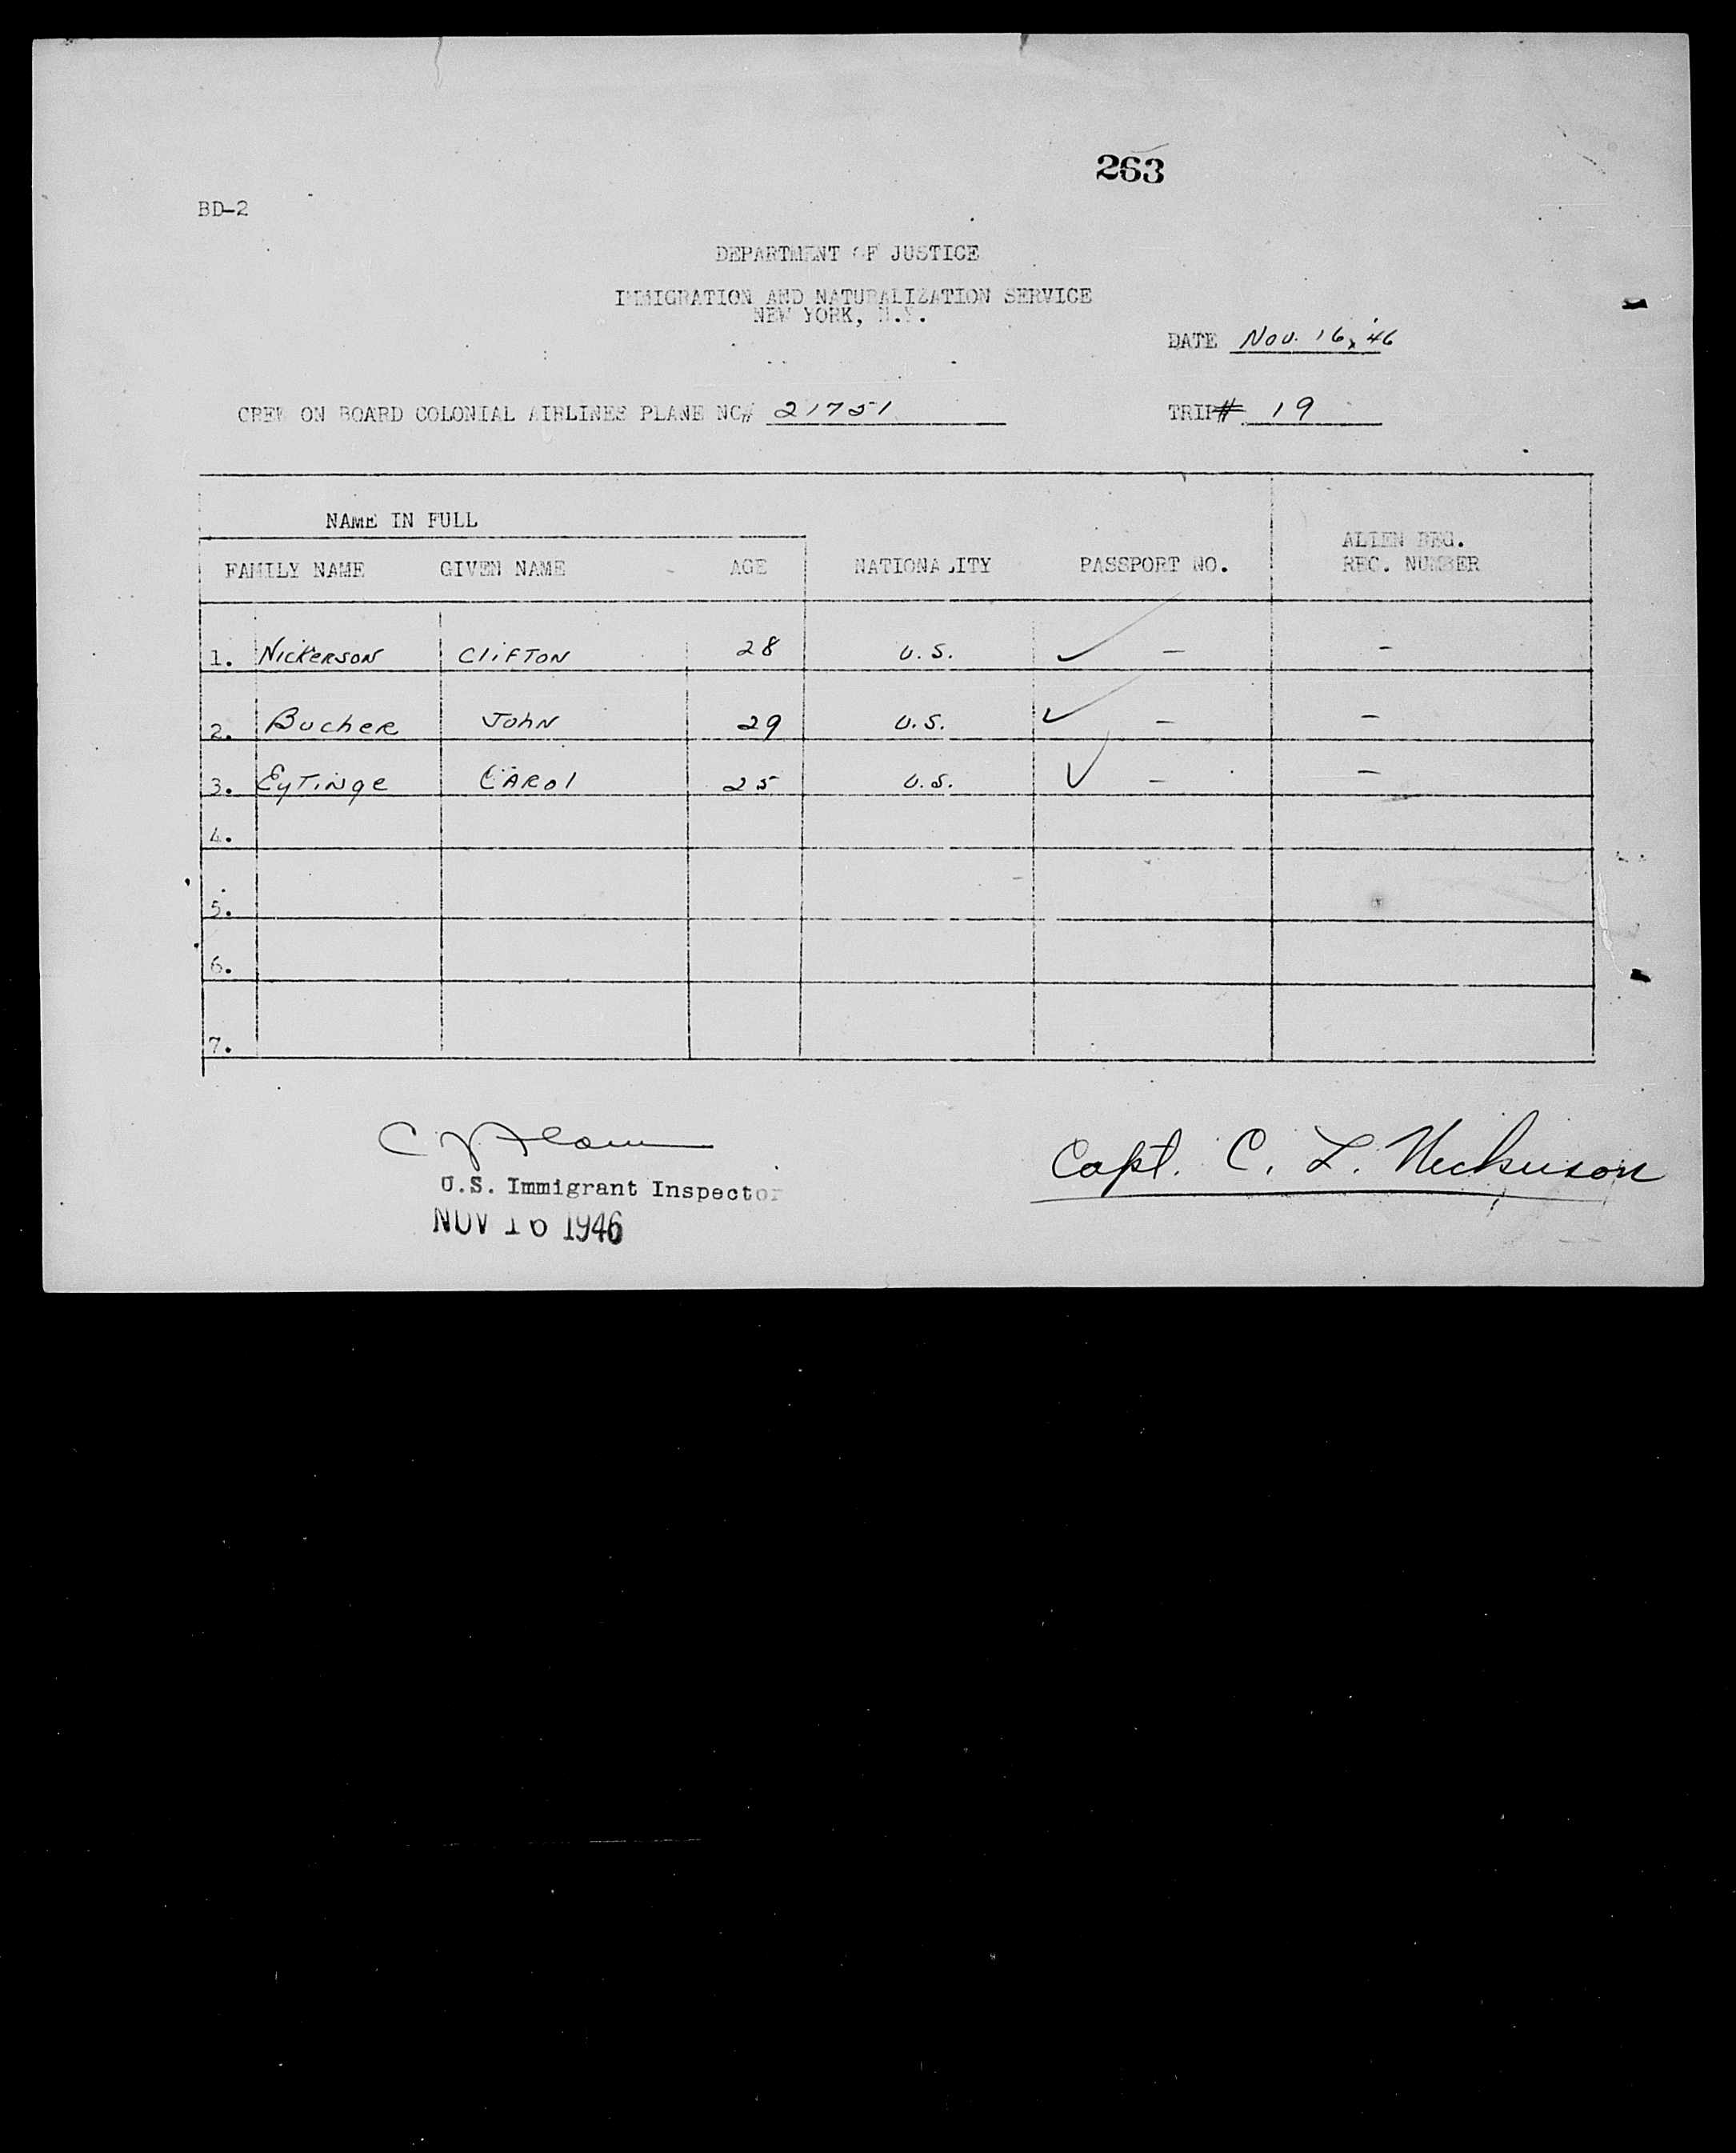 263
BD-2
DEPARTMENT OF JUSTICE
IMMIGRATION AND NATURALIZATION SERVICE
NEW YORK, N.Y.
DATE Nov. 16, '46
CREW ON BOARD COLONIAL AIRLINES PLANE NC# 21751 TRIP# 19
NAME IN FULL
FAMILY NAME GIVEN NAME AGE NATIONALITY PASSPORT NO. ALIEN REG. REC. NUMBER
1. Nickerson Clifton 28 U.S. ✓ – –
2. Bucher John 29 U.S. ✓ – –
3. Eytinge Carol 25 U.S. ✓ – –
4.
5.
6.
7.
Capt. C. L. Nickerson
U.S. Immigrant Inspector
NOV 16 1946